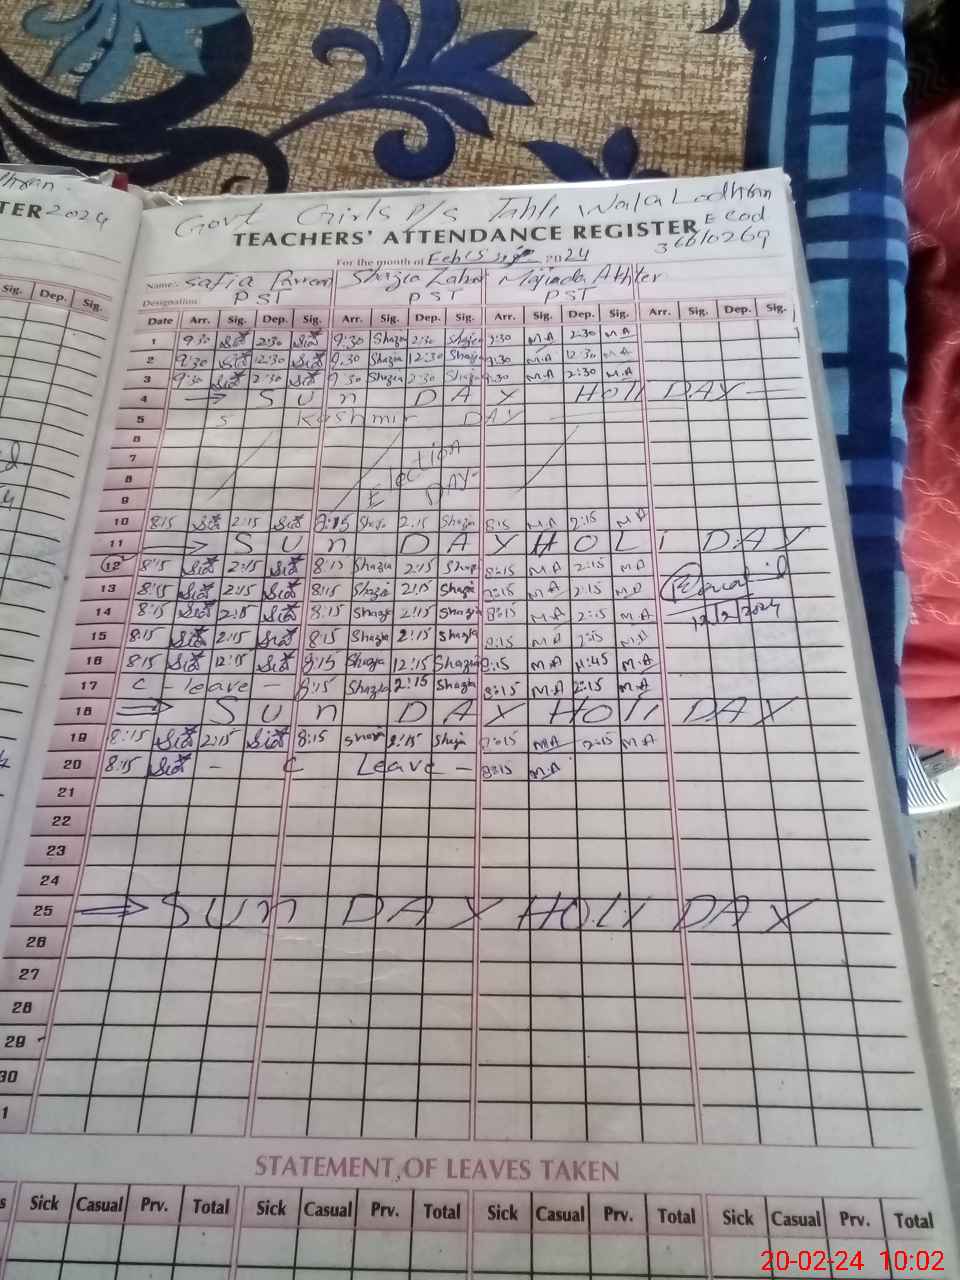 TER 2024
Govt Girls P/S Jahli Wala Lodhran
TEACHERS' ATTENDANCE REGISTER E cod
36610269
For the month of Feb 2024
Name: Safia Parveen Shazia Zahur Majinda Akhter
Designation PST PST PST
Sig. Dep. Sig. Date Arr. Sig. Dep. Sig. Arr. Sig. Dep. Sig. Arr. Sig. Dep. Sig. Arr. Sig. Dep. Sig.
1 9:30 2:30 9:30 Shazia 2:30 Shazia 9:30 M.A 2:30 M.A
2 9:30 12:30 9:30 Shazia 12:30 Shazia 9:30 M.A 12:30 M.A
3 9:30 2:30 9:30 Shazia 2:30 Shazia 9:30 M.A 2:30 M.A
4 → Sun DAY Holi DAY
5 5 Kashmir DAY
6
7 Election
8 DAY
9
10 8:15 2:15 8:15 Shazia 2:15 Shazia 8:15 M.A 2:15 M.A
11 → Sun DAY HOLi DAY
12 8:15 2:15 8:15 Shazia 2:15 Shazia 8:15 M.A 2:15 M.A
13 8:15 2:15 8:15 Shazia 2:15 Shazia 8:15 M.A 2:15 M.A
14 8:15 2:15 8:15 Shazia 2:15 Shazia 8:15 M.A 2:15 M.A 12/2/2024
15 8:15 2:15 8:15 Shazia 2:15 Shazia 8:15 M.A 2:15 M.A
16 8:15 12:15 8:15 Shazia 12:15 Shazia 8:15 M.A 11:45 M.A
17 C - leave - 8:15 Shazia 2:15 Shazia 8:15 M.A 2:15 M.A
18 → Sun DAY Holi DAY
19 8:15 2:15 8:15 Shazia 2:15 Shazia 8:15 M.A 2:15 M.A
20 8:15 - C Leave - 8:15 M.A
21
22
23
24
25 → SUn DAY HOLi DAY
26
27
28
29
30
1
STATEMENT OF LEAVES TAKEN
s Sick Casual Prv. Total Sick Casual Prv. Total Sick Casual Prv. Total Sick Casual Prv. Total
20-02-24 10:02